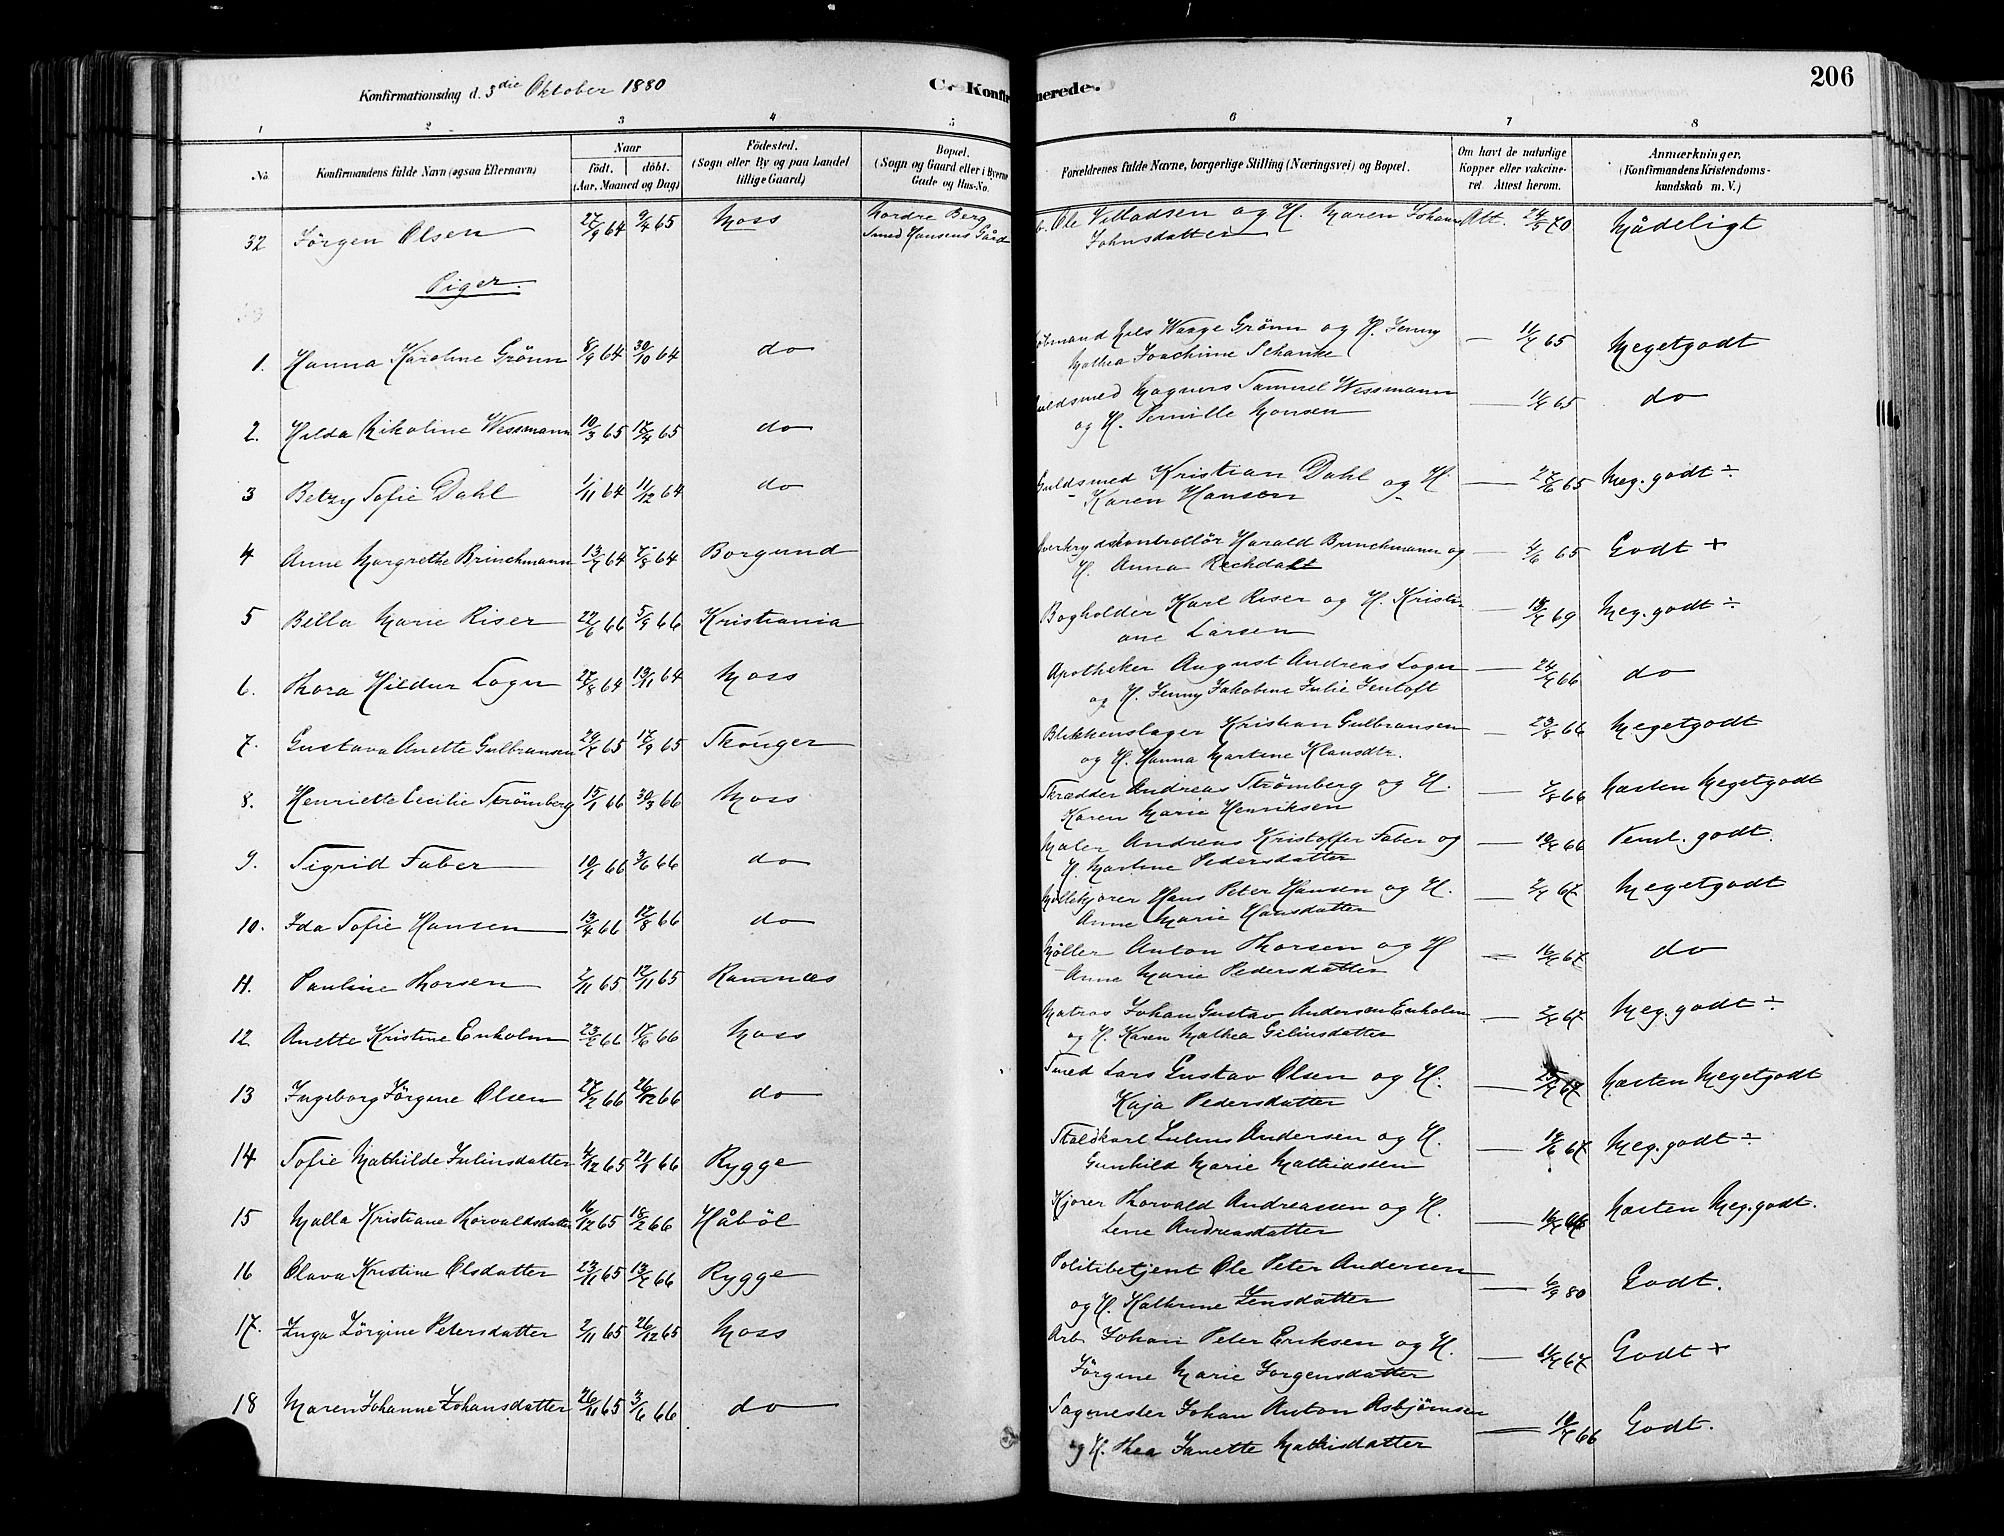 Konfirmationsdag d. 3die Oktober 1880
C. Konfirmerede.
206
1 2 3 4 5 6 7 8
No.
Konfirmandens fulde Navn (ogsaa Efternavn)
Naar
födt. döbt.
(Aar, Maaned og Dag)
Födested.
(Sogn eller By og paa Landet
tillige Gaard)
Bopæl.
(Sogn og Gaard eller i Byerne
Gade og Hus-No.
Forældrenes fulde Navne, borgerlige Stilling (Næringsvei) og Bopæl.
Om havt de naturlige
Kopper eller vakcine-
ret. Attest herom.
Anmærkninger.
(Konfirmandens Kristendoms-
kundskab m. V.)
32 Jörgen Olsen 27/9 64 9/4 65 Moss Nordre Berg Ole Villadsen og H. Maren Johanne Att. 24/5 70 Mådeligt
Smed Hansens Gård Johnsdatter
Piger.
1. Hanna Karoline Grönn 8/9 64 30/10 64 do Nils Waage Grönn og H. Jenny — 65 Megetgodt
Mathea Joachime Schanke
2. Hilda Nikoline Wessmann 10/3 65 17/4 65 do Magnus Samuel Wessmann — 65 do
og H. Pernille Monsen
3 Betzy Sofie Dahl 1/11 64 11/12 64 do Guldsmed Kristian Dahl og H. — 27/6 65 Meg. godt ÷
Karen Hansen
4 Anne Margrethe Brinchmann 13/7 64 7/8 64 Borgund Harald Brinchmann og — 4/6 65 Godt +
H. Anna Rechdahl
5 Billa Marie Riser 22/6 66 5/9 66 Kristiania Bogholder Karl Riser og H. Kristi- — 69 Meg. godt ÷
ane Larsen
6. Thora Hildur Logn 27/8 64 13/11 64 Moss Apotheker August Andreas Logn — 66 do
og H. Jenny Jakobine Julie Jentoft
7. Gustava Anette Gulbransen 65 17/9 65 Skouger Blikkenslager Kristian Gulbransen — 23/8 66 Megetgodt
og H. Hanna Martine Klausdtr.
8. Henriette Cecilie Strömberg 15/1 66 30/3 66 Moss Skrædder Andreas Strömberg og H. — 7/8 66 Næsten Megetgodt
Karen Marie Henriksen
9. Sigrid Faber 10/1 66 3/6 66 do Maler Andreas Kristoffer Faber og — 66 Teml. godt.
H. Martine Pedersdatter
10. Ida Sofie Hansen 13/4 66 12/8 66 do Hans Peter Hansen og H. — 67 Megetgodt
Anne Marie Hansdatter
11. Pauline Thorsen 2/11 65 12/11 65 Ramnæs Møller Anton Thorsen og H — 67 do
Anne Marie Pedersdatter
12 Anette Kristine Enholm 23/2 66 17/6 66 Moss Matros Johan Gustav Andersen Enholm — 67 Meg. godt ÷
og H. Karen Mathea Gilinsdatter
13 Ingeborg Jörgine Olsen 27/2 66 26/12 66 do Smed Lars Gustav Olsen og H. — 67 Næsten Megetgodt
Kaja Pedersdatter
14 Sofie Mathilde Juliusdatter 4/12 65 21/1 66 Rygge Staldkarl Julius Andersen og H. — 67 Meg. godt ÷
Gunhild Marie Mathiassen
15 Malla Kristiane Thorvaldsdatter 16/12 65 18/2 66 Håböl Kjører Thorvald Andreassen og H. — Næsten Meg. godt.
Lene Andreasdatter
16 Olava Kristine Olsdatter 23/11 65 66 Rygge Politibetjent Ole Peter Andersen — 6/9 80 Godt.
og H. Kathrine Jensdatter
17. Inga Jörgine Petersdatter 2/11 65 26/12 65 Moss Arb Johan Peter Eriksen og H. — 67 Godt +
Jörgine Marie Jorgensdatter
18 Maren Johanne Johansdatter 26/11 65 3/6 66 do Sagmester Johan Anton Asbjörnsen — 66 Godt.
og H. Thea Janette Mathisdatter